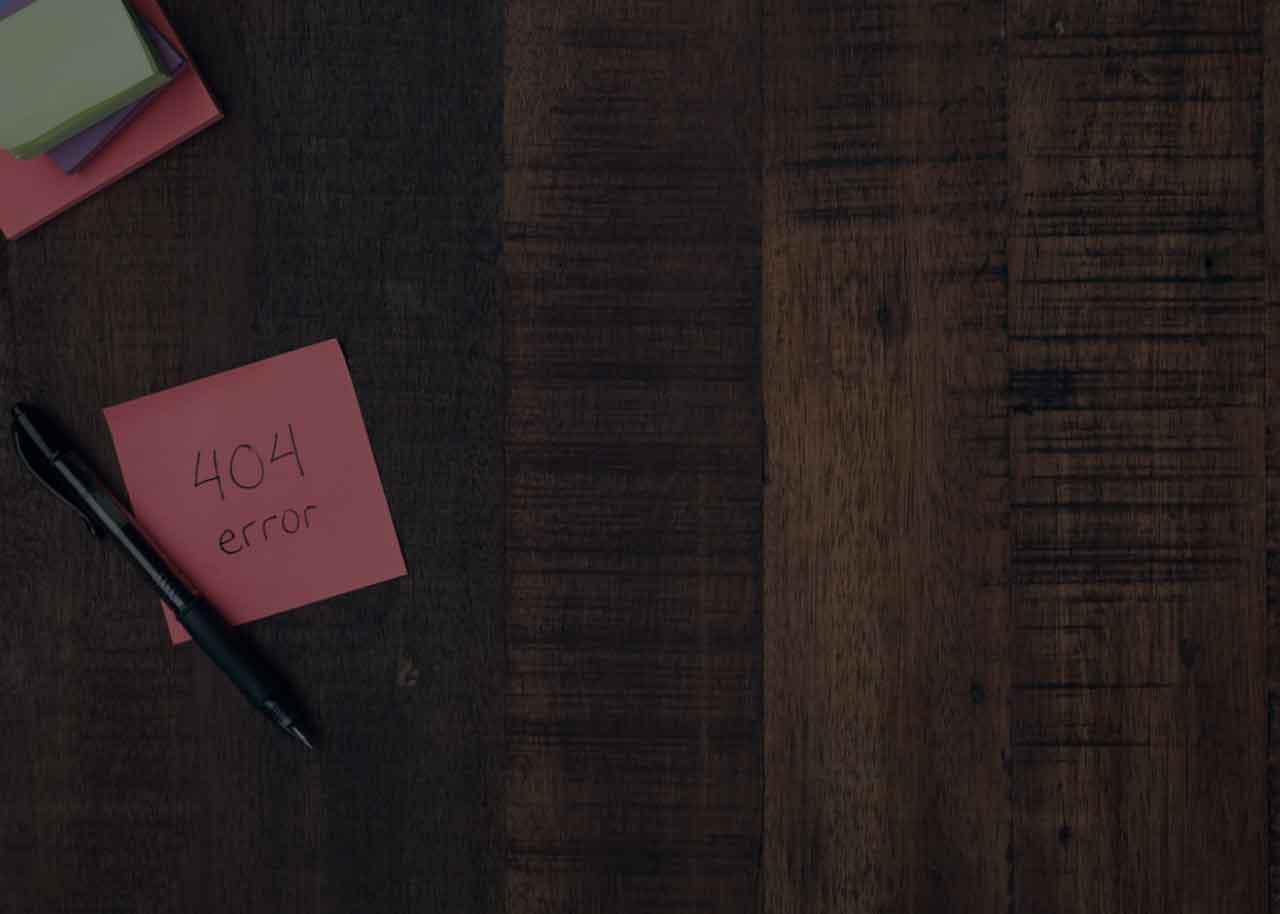 404
error